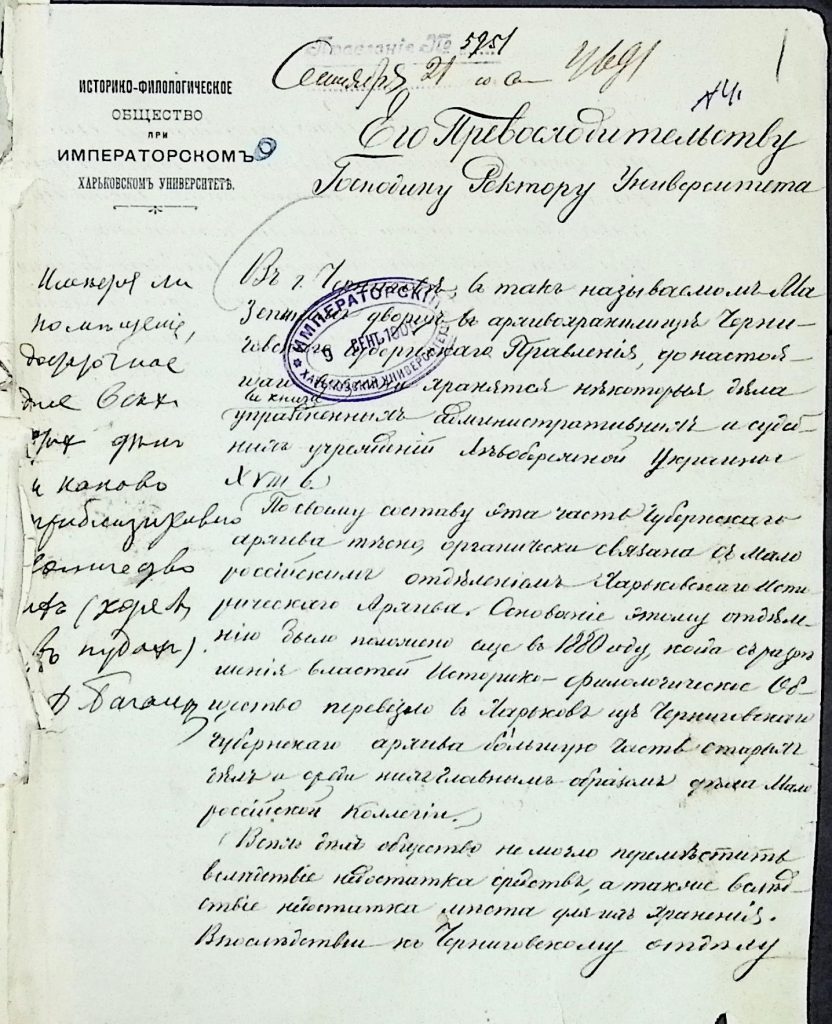 Правленіе № 5951
Сентября 21
№ 4.
ИСТОРИКО-ФИЛОЛОГИЧЕСКОЕ
ОБЩЕСТВО
ПРИ
ИМПЕРАТОРСКОМЪ
ХАРЬКОВСКОМЪ УНИВЕРСИТЕТѢ.
Его Превосходительству
Господину Ректору Университета
Имѣется ли
помѣщеніе,
достаточное
для всѣхъ
этихъ дѣлъ
и каково
приблизительно
количество
ихъ (хотя
въ пудахъ).
Д Багалѣй
ИМПЕРАТОРСКІЙ
9 СЕН. 190
ХАРЬКОВСКІЙ УНИВЕРСИТЕТЪ
Въ г. Черниговѣ, въ такъ называемомъ Ма
зепиномъ дворцѣ, въ архивохранилищѣ Черни-
говскаго Губернскаго Правленія, до настоя-
щаго времени хранятся нѣкоторыя дѣла
и книги
упраздненныхъ административныхъ и судеб-
ныхъ учрежденій Лѣвобережной Украины
XVIII в.
По своему составу эта часть Губернскаго
архива тѣсно, органически связана съ Мало
россійскимъ отдѣленіемъ Харьковскаго Исто-
рическаго Архива. Основаніе этому отдѣле-
нію было положено еще въ 1880 году, когда съ разрѣ
шенія властей Историко-филологическое Об-
щество перевезло въ Харьковъ изъ Черниговскаго
Губернскаго архива большую часть старыхъ
дѣлъ и среди нихъ главнымъ образомъ дѣла Мало
россійской Коллегіи.
Всѣхъ дѣлъ общество не могло перемѣстить
вслѣдствіе недостатка средствъ, а также вслѣд-
ствіе недостатка мѣста для ихъ храненія.
Впослѣдствіи къ Черниговскому отдѣлу